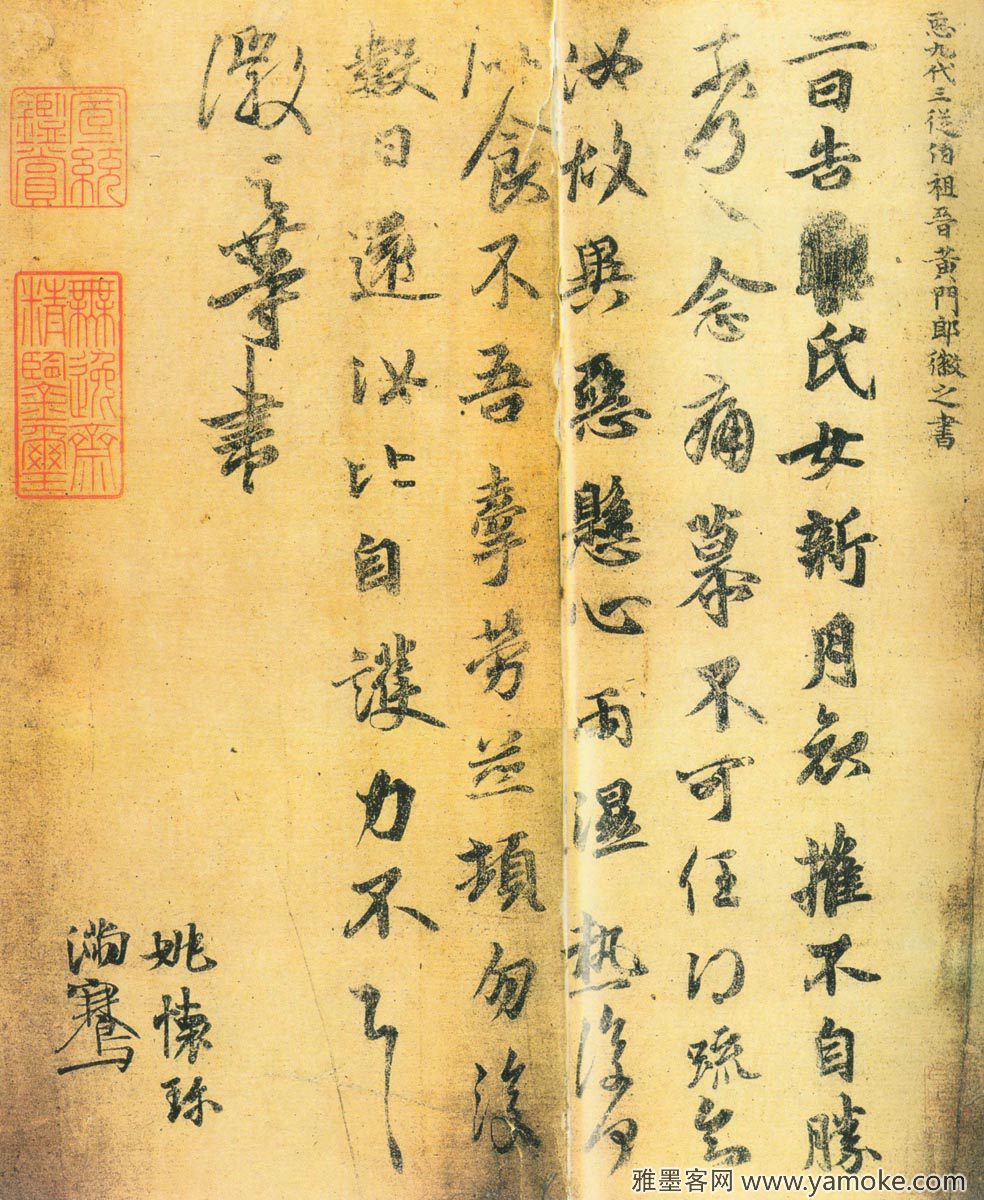 𢘑九代三從伯祖晉黃門郎徽之書
二日告氏女新月哀摧不自勝
奈何奈何念痛慕不可任得疏知
汝故異惡懸心雨濕熱復何
似食不吾牽勞並頓勿復
數日還汝比自護力不具
徽之等書
姚懷珍
滿騫
宣統
鑑賞
無逸齋
精鑒璽
雅墨客网 www.yamoke.com